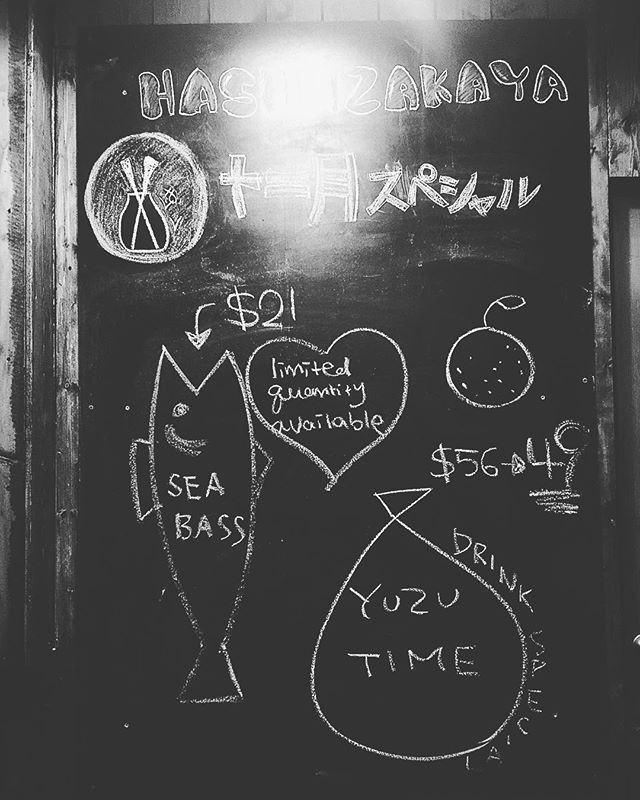 HASHI IZAKAYA
十二月スペシャル
$21
limited
quantity
available
SEA
BASS
$56→49
YUZU
TIME
DRINK